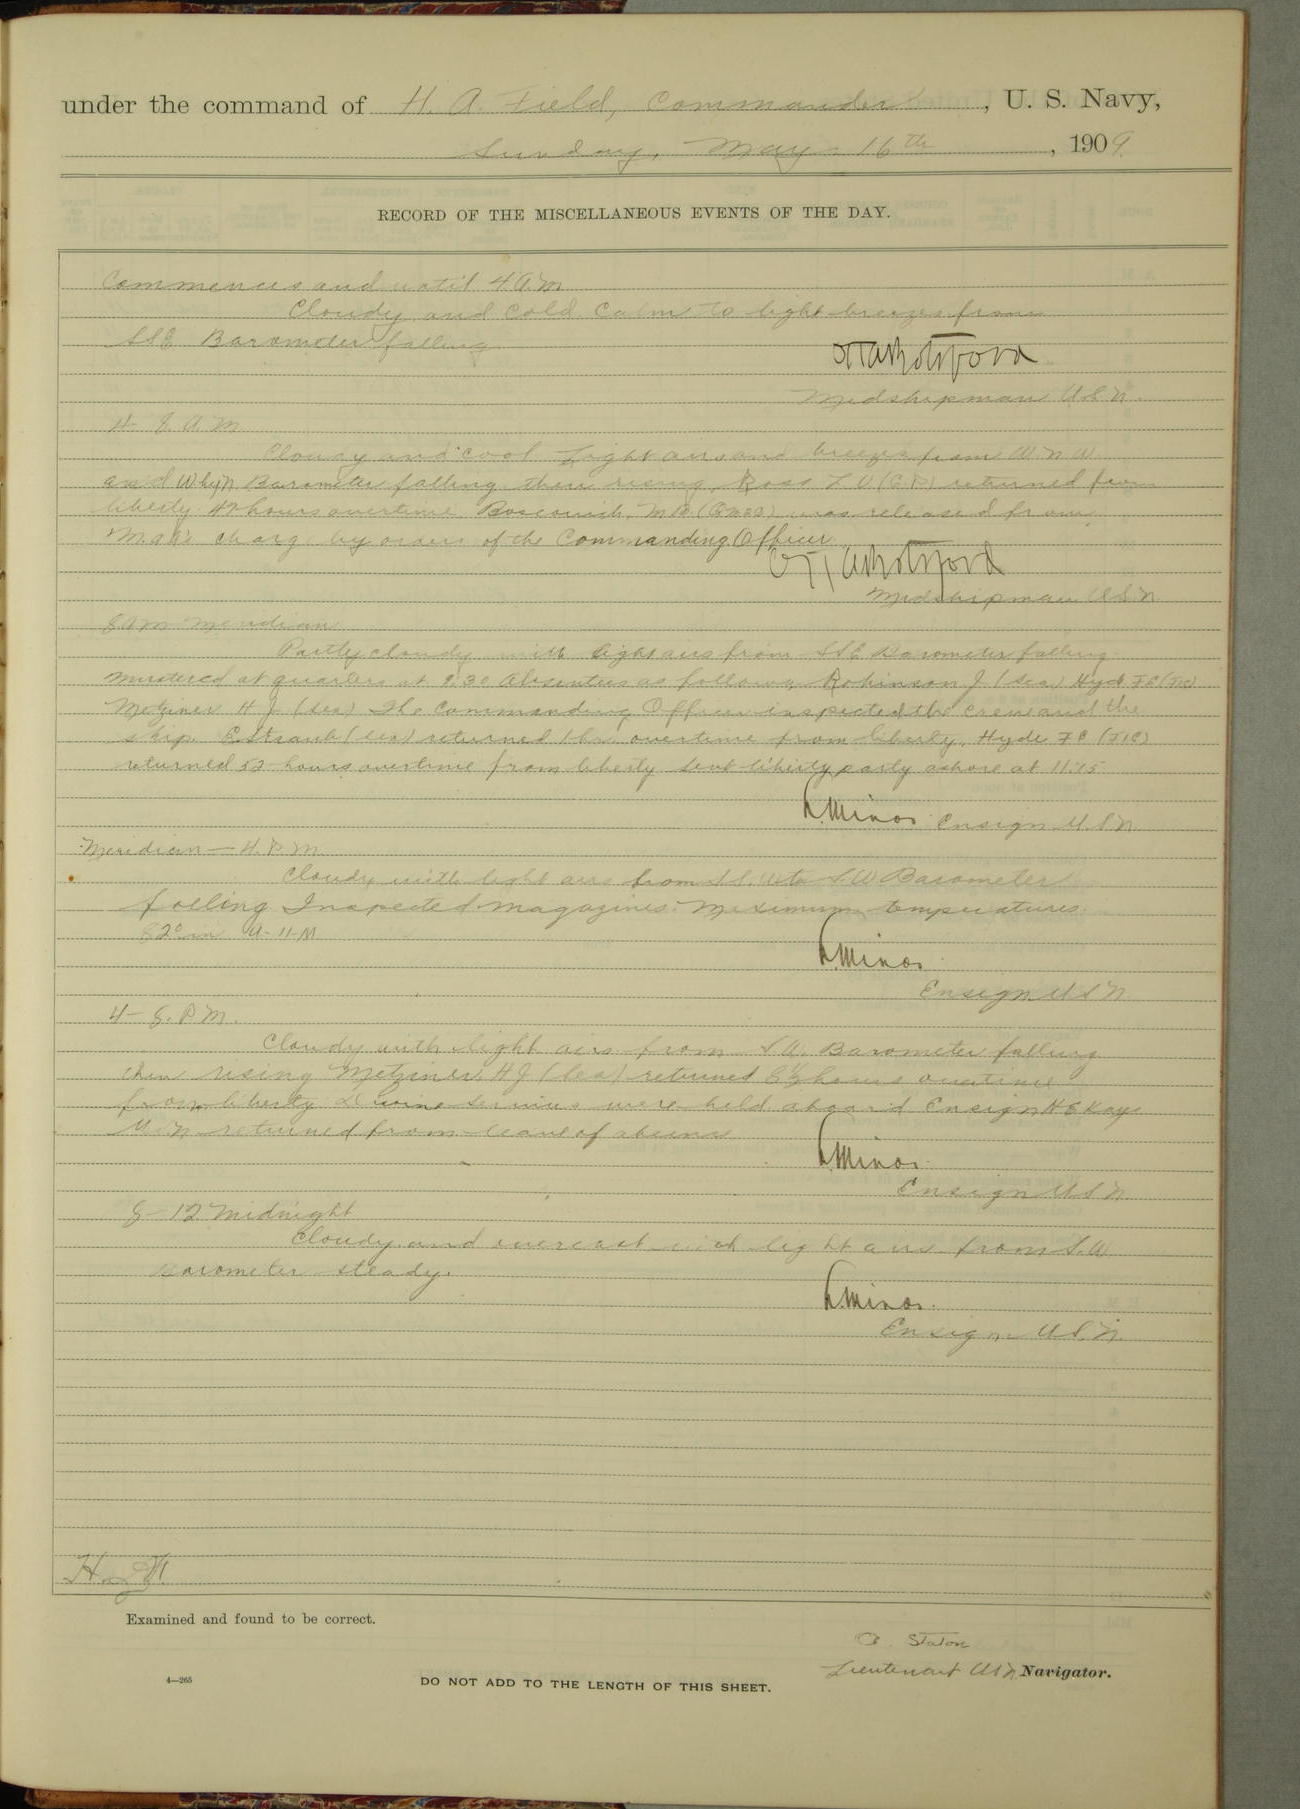 under the command of H. A. Field, Commander, U. S. Navy,
Sunday, May 16th, 1909.
RECORD OF THE MISCELLANEOUS EVENTS OF THE DAY.
Commences and until 4 A.M
Cloudy and Cold Calm to light breezes from
SSE Barometer falling
Midshipman U.S.N.
4- 8. A. M
Cloudy and cool Light airs and breezes from W. N. W.
and WbyN Barometer falling then rising, Ross (C.P.) returned from
liberty hours overtime. was released from
charge by order of the Commanding Officer
Midshipman U.S.N.
8 am Meridian
Partly cloudy with light airs from SSE Barometer falling
Mustered at quarters at 9.30 Absentees as follows, Robinson J (Sea) Hyde F.C
Metziner H J. (Sea) The Commanding Officer inspected the crew and the
ship. E. Straub (Sea) returned overtime from liberty. Hyde F C
returned 52 hours overtime from liberty Sent liberty party ashore at 11:15
Minor Ensign U.S.N.
Meridian — 4. P M
Cloudy with light airs from to S.W Barometer
falling Inspected magazines. Maximum temperatures.
82° in U-11-M
Minor
Ensign U S N
4- 8. P M.
Cloudy with light airs from S.W. Barometer falling
then rising Metziner, H J (Sea) returned hours overtime
from liberty Divine services were held aboard Ensign H E Kays
U.S.N returned from leave of absence
Minor
Ensign U S N
8- 12 Midnight
Cloudy and overcast with light airs from S.W
Barometer steady.
Minor
Ensign U.S.N.
Examined and found to be correct.
Staton
Lieutenant U.S.N. Navigator.
4—265
DO NOT ADD TO THE LENGTH OF THIS SHEET.